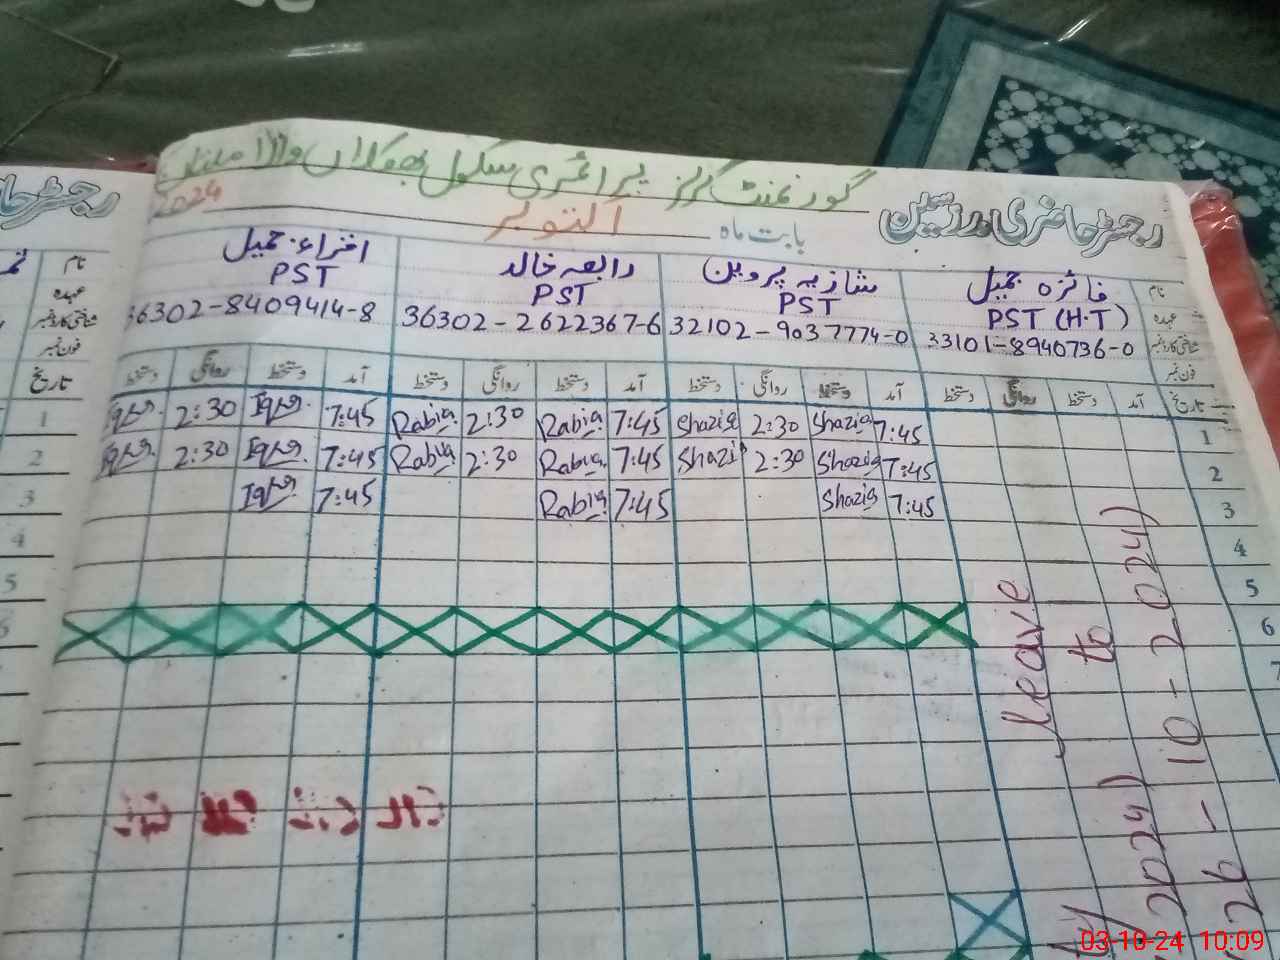 گورنمنٹ گرلز پرائمری سکول
رجسٹر حاضری مدرسین
بابت ماہ
اکتوبر
2024
نام
فائزہ جمیل
شازیہ پروین
رابعہ خالد
اقراء جمیل
عہدہ
PST (H.T)
PST
PST
PST
شناختی کارڈ نمبر
33101-8940736-0
32102-9037774-0
36302-2622367-6
36302-8409414-8
فون نمبر
تاریخ آمد دستخط روانگی دستخط آمد دستخط روانگی دستخط آمد دستخط روانگی دستخط آمد دستخط روانگی دستخط
1 7:45 Shazia 2:30 Shazia 7:45 Rabia 2:30 Rabia 7:45 Iqra 2:30 Iqra
2 7:45 Shazia 2:30 Shazi 7:45 Rabia 2:30 Rabia 7:45 Iqra 2:30 Iqra
3 7:45 Shazia 7:45 Rabia 7:45 Iqra
4
5
6
7
Leave
to
2024)
26-10-2024)
رجسٹر
نام
عہدہ
شناختی کارڈ نمبر
فون نمبر
تاریخ
1
2
3
4
5
03-10-24 10:09